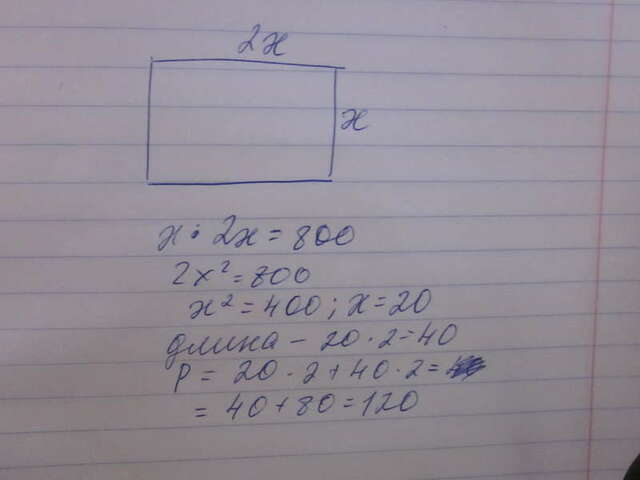 2x
x
x · 2x = 800
2x² = 800
x² = 400; x = 20
длина – 20 · 2 = 40
P = 20 · 2 + 40 · 2 =
= 40 + 80 = 120